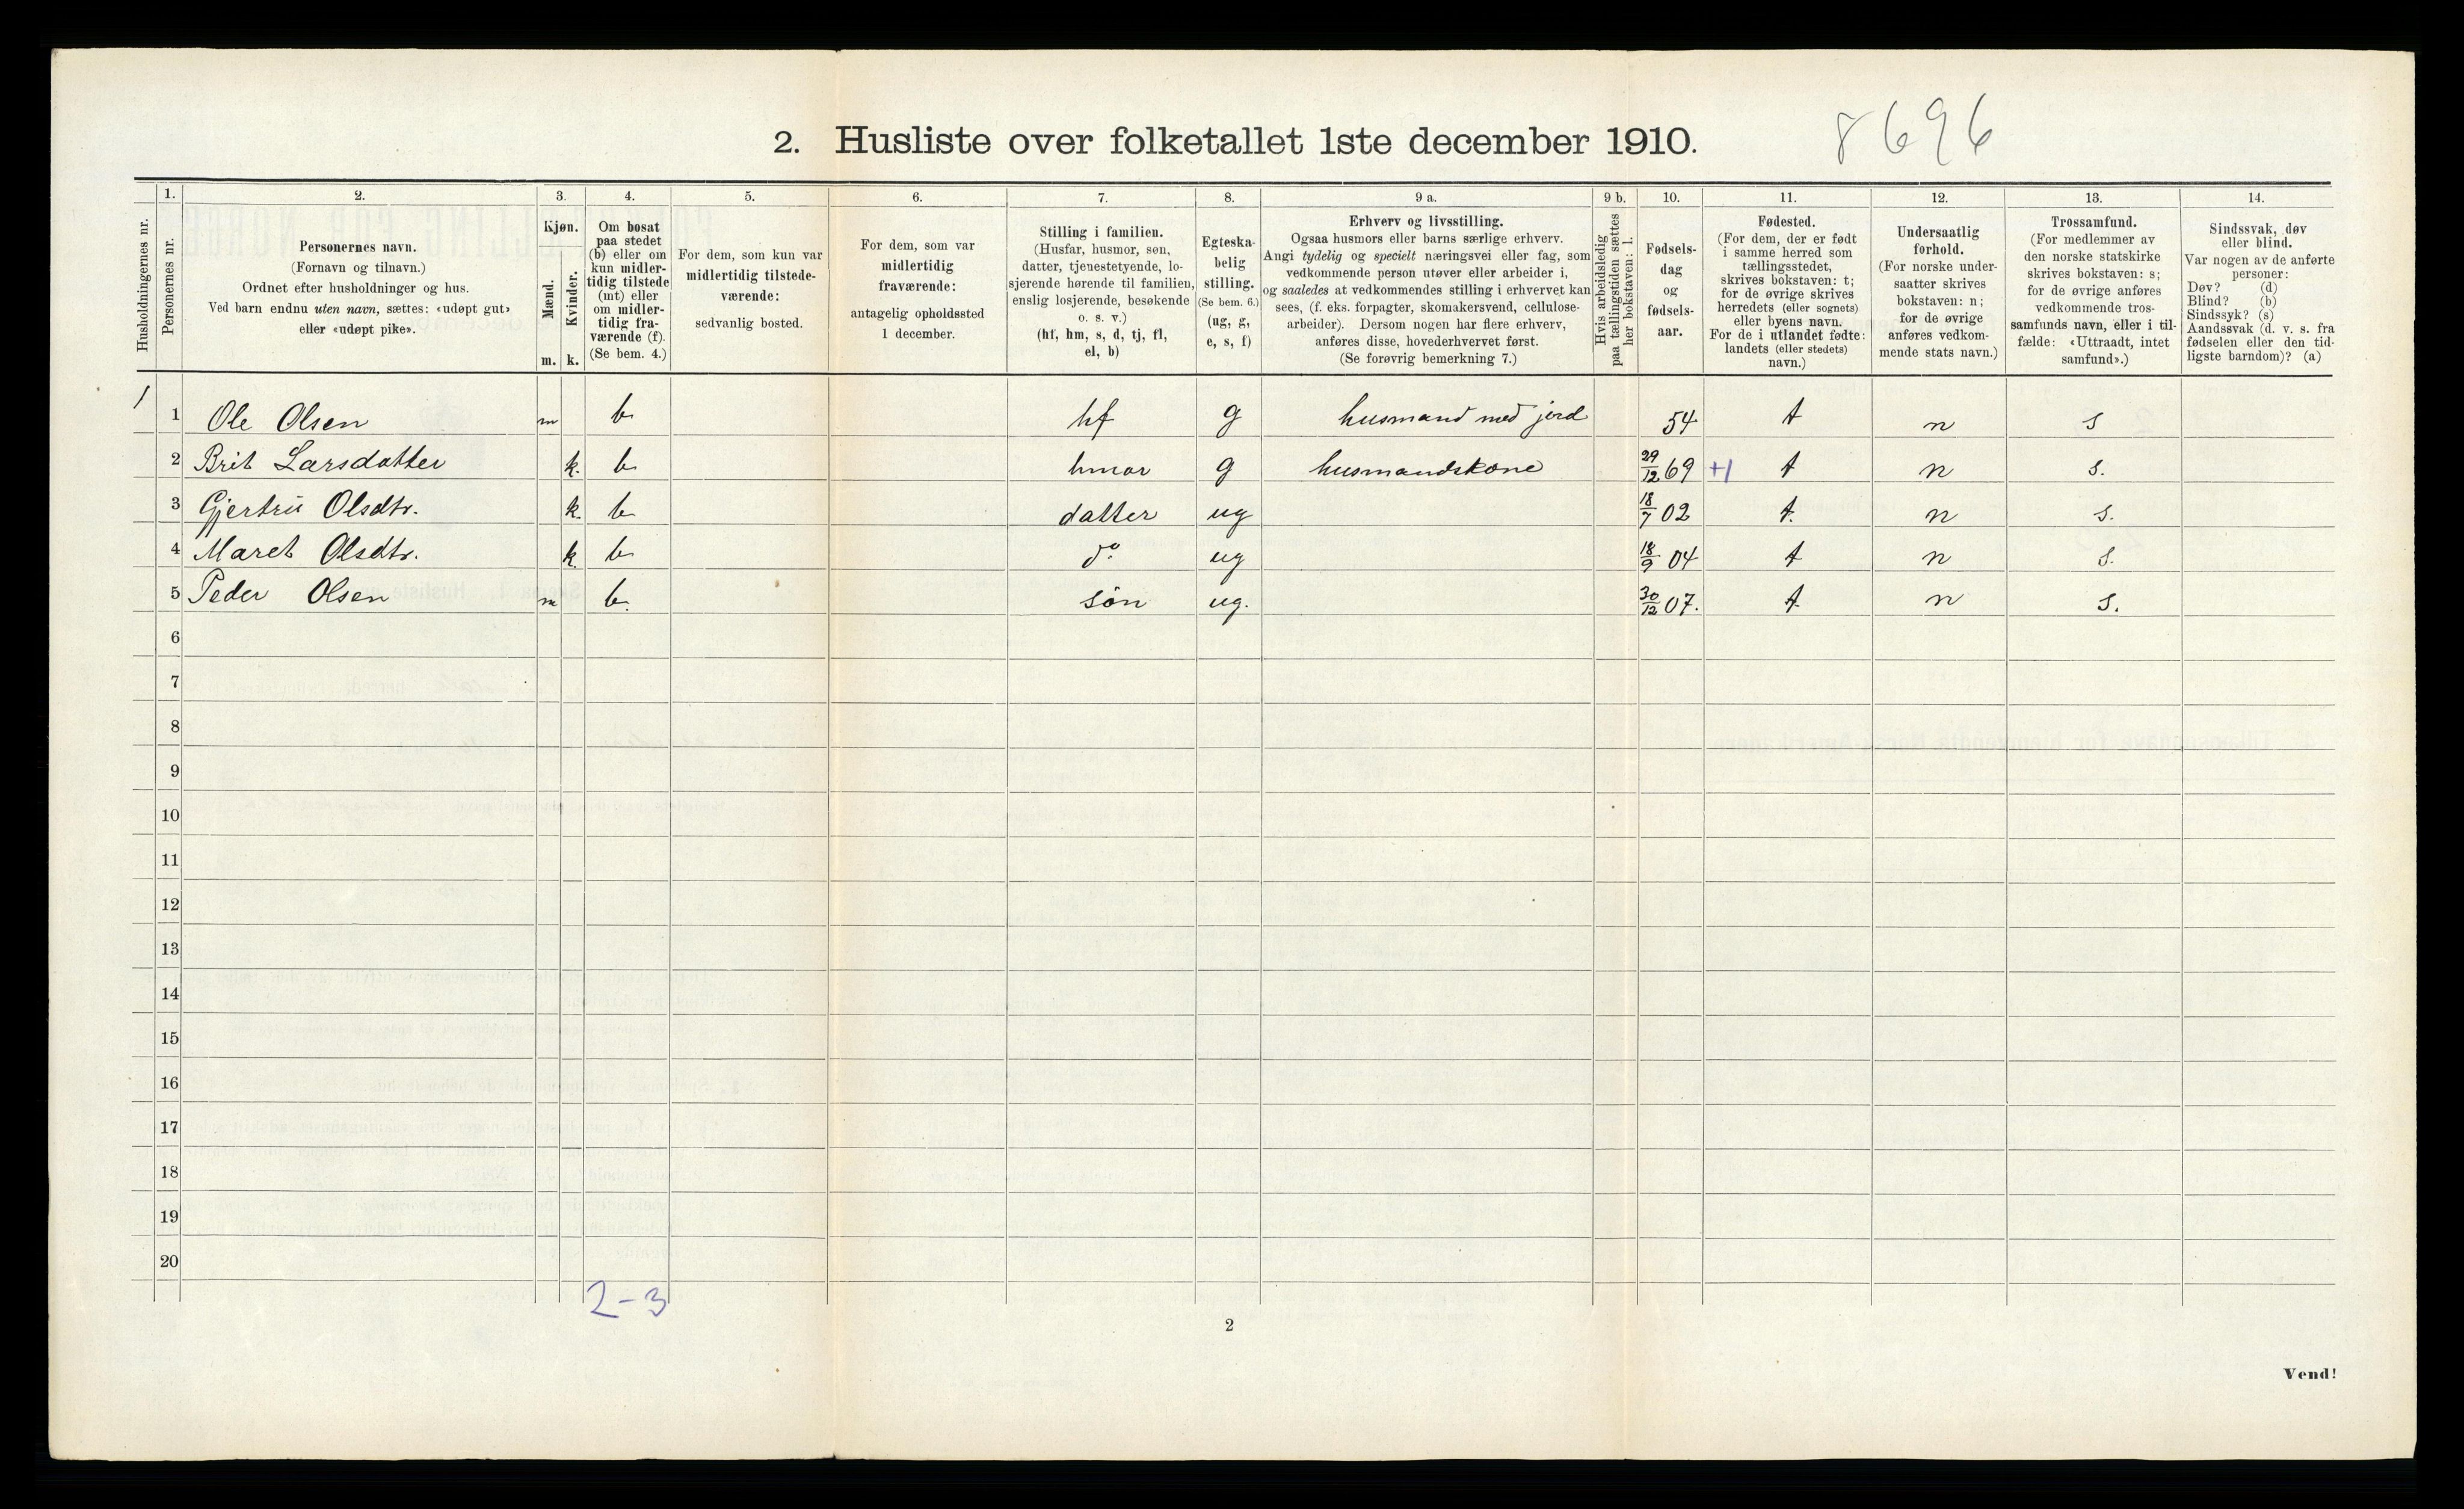 2. Husliste over folketallet 1ste december 1910.
8696
Husholdningernes nr.
1.
Personernes nr.
2.
Personernes navn.
(Fornavn og tilnavn.)
Ordnet efter husholdninger og hus.
Ved barn endnu uten navn, sættes: «udøpt gut»
eller «udøpt pike».
3.
Kjøn.
Mænd.
Kvinder.
m. k.
4.
Om bosat
paa stedet
(b) eller om
kun midler-
tidig tilstede
(mt) eller
om midler-
tidig fra-
værende (f).
(Se bem. 4.)
5.
For dem, som kun var
midlertidig tilstede-
værende:
sedvanlig bosted.
6.
For dem, som var
midlertidig
fraværende:
antagelig opholdssted
1 december.
7.
Stilling i familien.
(Husfar, husmor, søn,
datter, tjenestetyende, lo-
sjerende hørende til familien,
enslig losjerende, besøkende
o. s. v.)
(hf, hm, s, d, tj, fl,
el, b)
8.
Egteska-
belig
stilling.
(Se bem. 6.)
(ug, g,
e, s, f)
9 a.
Erhverv og livsstilling.
Ogsaa husmors eller barns særlige erhverv.
Angi tydelig og specielt næringsvei eller fag, som
vedkommende person utøver eller arbeider i,
og saaledes at vedkommendes stilling i erhvervet kan
sees, (f. eks. forpagter, skomakersvend, cellulose-
arbeider). Dersom nogen har flere erhverv,
anføres disse, hovederhvervet først.
(Se forøvrig bemerkning 7.)
9 b.
Hvis arbeidsledig
paa tællingstiden sættes
her bokstaven: l.
10.
Fødsels-
dag
og
fødsels-
aar.
11.
Fødested.
(For dem, der er født
i samme herred som
tællingsstedet,
skrives bokstaven: t;
for de øvrige skrives
herredets (eller sognets)
eller byens navn.
For de i utlandet fødte:
landets (eller stedets)
navn.)
12.
Undersaatlig
forhold.
(For norske under-
saatter skrives
bokstaven: n;
for de øvrige
anføres vedkom-
mende stats navn.)
13.
Trossamfund.
(For medlemmer av
den norske statskirke
skrives bokstaven: s;
for de øvrige anføres
vedkommende tros-
samfunds navn, eller i til-
fælde: «Uttraadt, intet
samfund».)
14.
Sindssvak, døv
eller blind.
Var nogen av de anførte
personer:
Døv? (d)
Blind? (b)
Sindssyk? (s)
Aandssvak (d. v. s. fra
fødselen eller den tid-
ligste barndom)? (a)
1 1 Ole Olsen m b hf g husmand med jord 54 t n s
2 Brit Larsdatter k. b hmor g husmandskone 29/12 69 +1 t n s.
3 Gjertrü Olsdtr. k. b datter ug 18/7 02 t. n s.
4 Maret Olsdtr. k. b do ug 18/9 04 t n s.
5 Peder Olsen m b. søn ug. 30/12 07. t n s.
6
7
8
9
10
11
12
13
14
15
16
17
18
19
20
2-3
2
Vend!